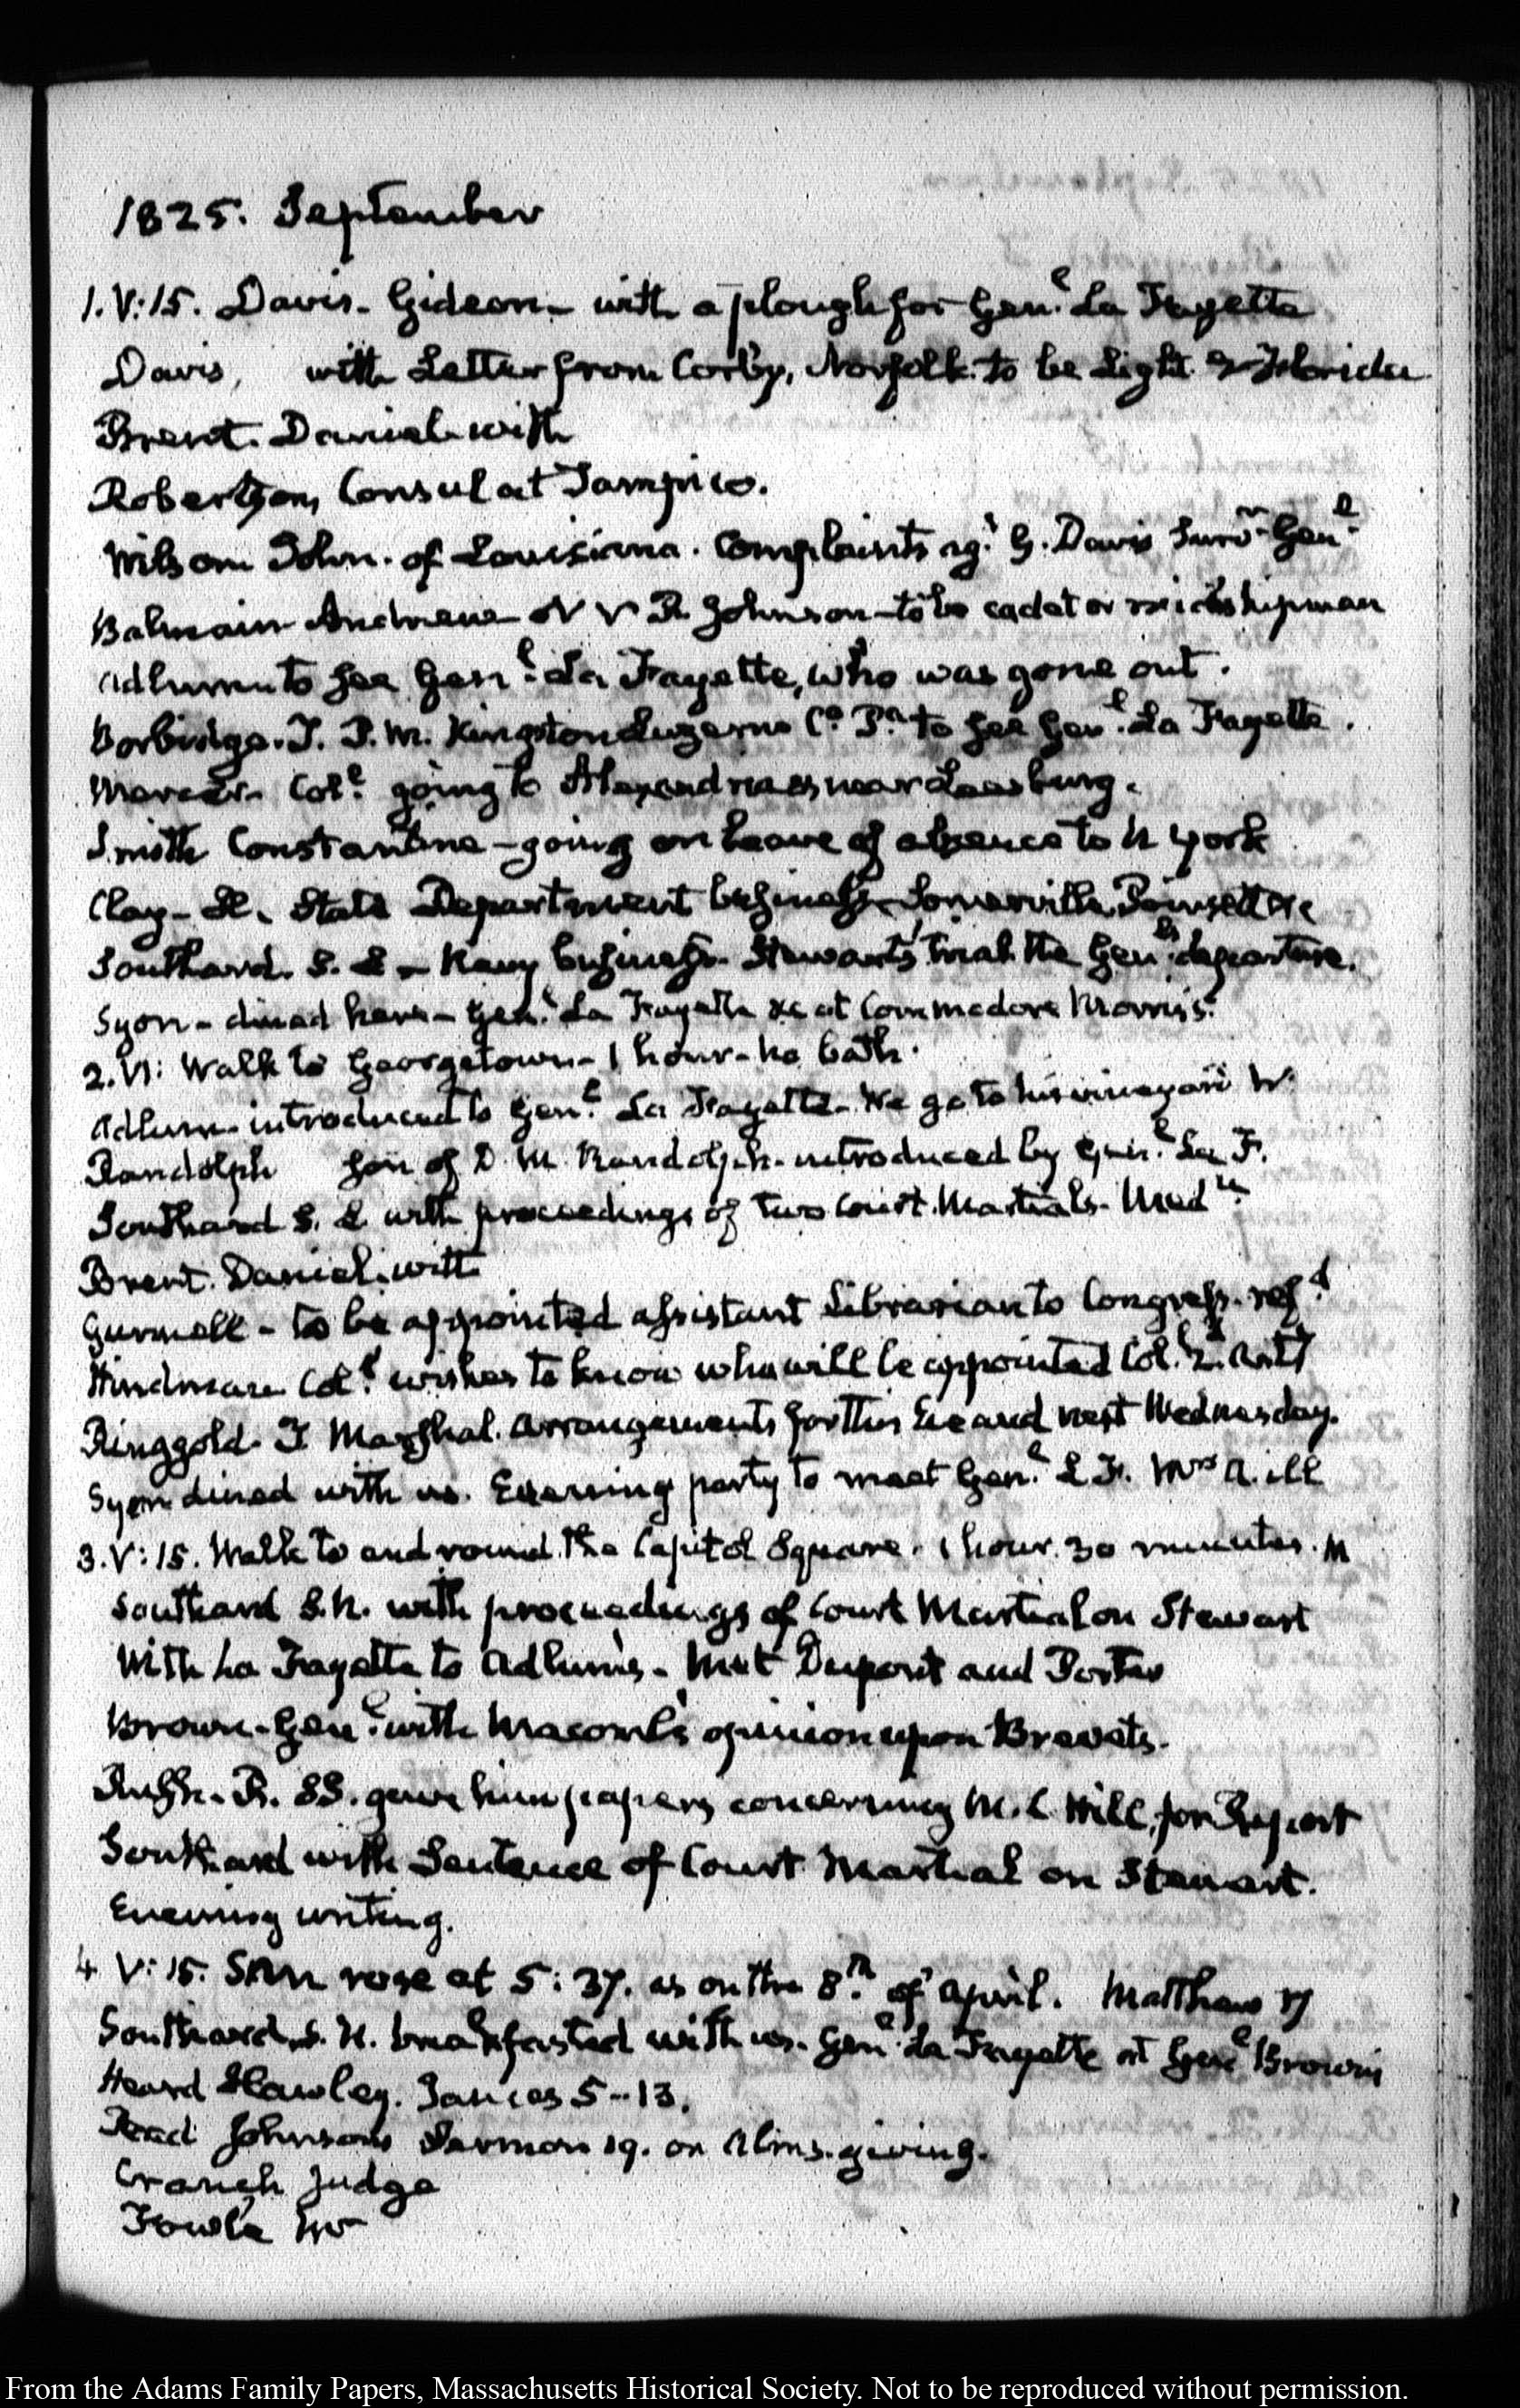 1825. September
1. V:15. Davis. Gideon – with a plough for Gen.l La Fayette
Davis, with Letter from Corby, Norfolk. to be Light Florida
Brent. Daniel with
Robertson, Consul at Tampico.
Wilson John. of Louisiana. Complaints ag.t G. Davis Surv.r Gen.l
Balmain Andrew V R. Johnson – to be cadet or midshipman
Adlum to see Gen.l La Fayette, who was gone out.
Borbidge. J. P.M. Kingston Luzerne C.o P.a to see Gen.l La Fayette.
Mercer. Col.l going to near Leesburg.
Smith Constantine – going on leave of absence to N York
Clay – H. State Department business – Somerville, Poinsett &c
Southard. S. L – Navy business. Stewart's trial. the Gen.ls departure.
Syon – dined here – Gen.l La Fayette &c at Commodore Morris's.
2. VI: Walk to Georgetown – 1 hour – no bath.
Adlum. introduced to Gen.l La Fayette – We go to his vineyard
Randolph son of D. M. Randolph. introduced by Gen.l La F.
Southard S. L with proceedings of two Court Martials.
Brent. Daniel. with
Gurnell – to be appointed assistant Librarian to Congress.
Hindman Col.l wishes to know who will be appointed Col.l 2.d Art.y
Ringgold. T Marshal. Arrangements for this Eve and next Wednesday.
Syon dined with us. Evening party to meet Gen.l L F. Mrs A. ill
3. V:15. Walk to and round the Capitol Square. 1 hour. 30 minutes. M
Southard S. N. with proceedings of Court Martial on Stewart
With La Fayette to Adlum's – Met Dupont and Porter
Brown – Gen.l with Macomb's opinion upon Brevets.
Rush. R. SS. gave him papers concerning M. L Hill, for Report
Southard with Sentence of Court Martial on Stewart.
Evening writing.
4 V:15. Sun rose at 5:37. as on the 8.th of April. Matthew 17
Southard S. N. breakfasted with us. Gen.l La Fayette at Gen.l Brown's
Heard Hawley. James 5–13.
Read Johnsons Sermon 19. on Alms.giving.
Cranch Judge
Fowle Mr
From the Adams Family Papers, Massachusetts Historical Society. Not to be reproduced without permission.